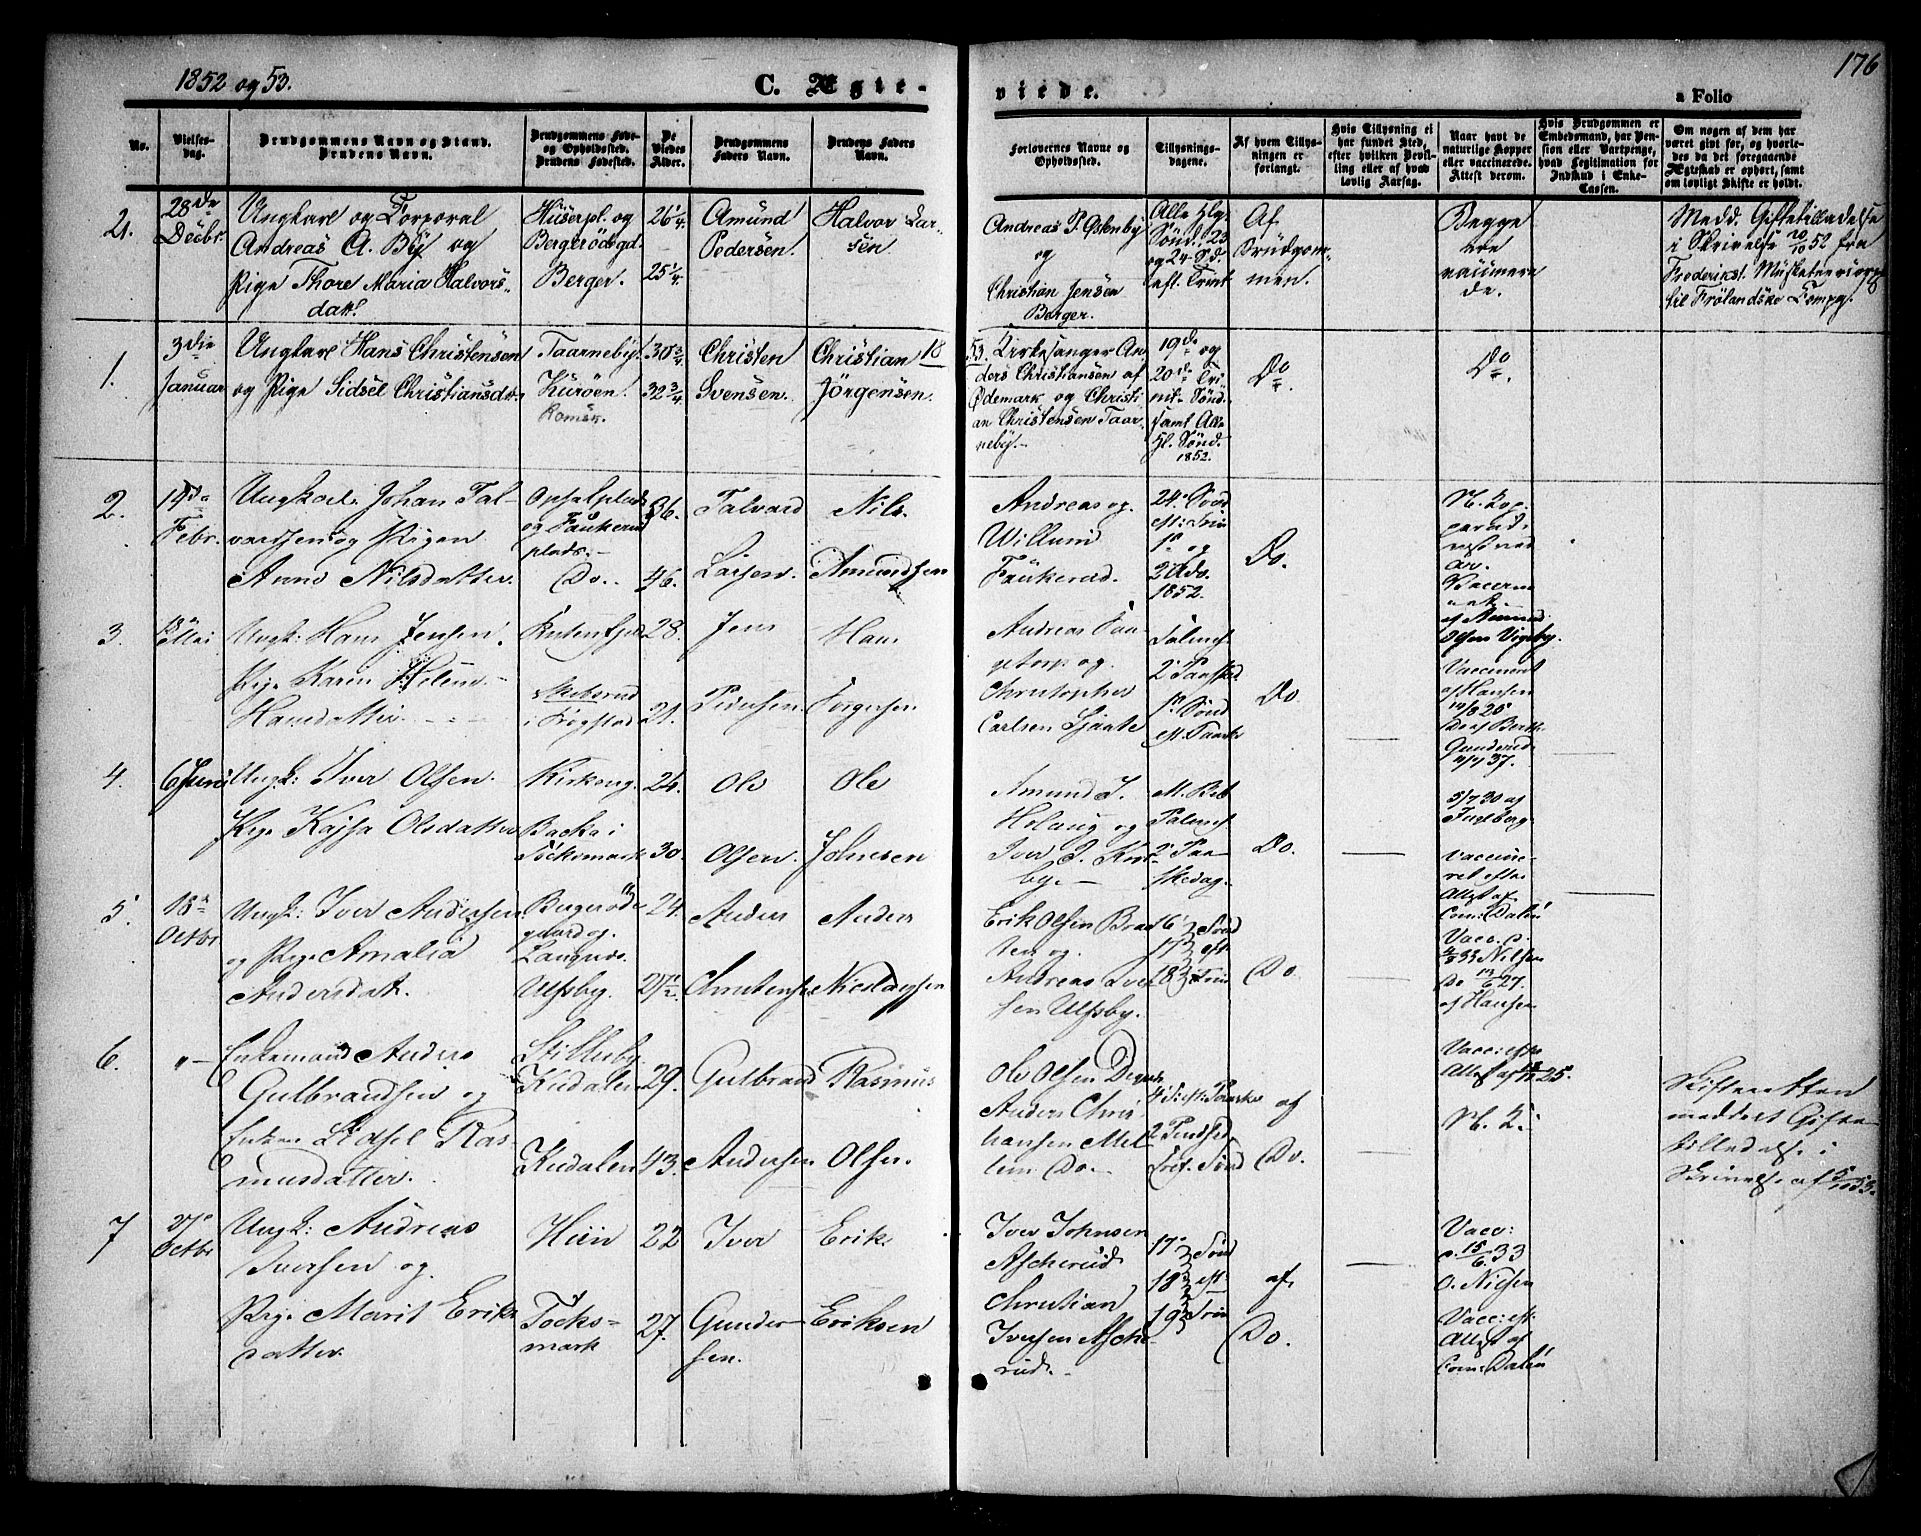 1852 og 53.
C. Ægte-
viede.
176
a Folio
No.
Vielses-
dag.
Brudgommens Navn og Stand.
Brudens Navn.
Brudgommens Føde-
og Opholdssted.
Brudens Fødested.
De
Viedes
Alder.
Brudgommens
Faders Navn.
Brudens Faders
Navn.
Forlovernes Navne og
Opholdssted.
Tillysnings-
dagene.
Af hvem Tillys-
ningen er
forlangt.
Hvis Tillysning ei
har fundet Sted,
efter hvilken Bevil-
ling eller af hvad
lovlig Aarsag.
Naar havt de
naturlige Kopper
eller vaccinerede.
Attest derom.
Hvis Brudgommen er
Embedsmand, har Pen-
sion eller Vartpenge,
hvad Legitimation for
Indskud i Enke-
Cassen.
Om nogen af dem har
været gift før, og hvorle-
des da det foregaaende
Ægteskab er ophørt, samt
om lovligt Skifte er holdt.
21.
28de
Decbr.
Ungkarl og Corporal
Andreas A. By og
Pige Thore Maria Halvors-
datt.
Huserpl. og
Bergerødegd.
Berger.
26 1/4
25 1/4
Amund
Pedersen.
Halvor Lar-
sen.
Andreas P. Østenby
og
Christian Jensen
Berger.
Alle Hlg.
Sønd: 23
og 24 S.d.
eft. Trint
Af
Brudgom-
men.
Begge
ere
vaccinere
de.
Medd. Giftetilladelse
i Skrivelse 20/10 52 fra
Frederikst. Musketeercorps
til Frølandske Compg.
1.
3die
Januar
Ungkarl Hans Christensen
og Pige Sidsel Christiansdtr.
Taarneby.
Kurøen.
Romsk.
30 3/4
32 3/4
Christen
Svensen.
Christian 18
Jörgensen.
53. Kirkesanger An-
ders Christiansen af
Ødemark og Christi-
an Christensen Taar-
neby.
19de og
20de Tri-
nit. Sønd.
samt Alle
Hl. Sønd.
1852.
Do
Do.
2.
19de
Febr.
Ungkarl Johan Tal-
vardsen og Pigen
Anne Nilsdatter.
Opsalplads
og Faukerud
plads.
Do.
36.
46.
Talvard
Larsen.
Nils
Amundsen
Andreas og
Willum
Faukerud.
24. Sønd
eft: Trin
1ste og
2 Adv.
1852.
Do.
N. Kop.
Vaccin
af Amund
Olsen Vigsby.
3.
Mai
Ungk: Hans Jensen.
Pige Karen Helene
Hansdatter.
Skiberud
i Trøgstad
28.
21.
Jens
Pedersen
Hans
Torgersen
Andreas
og
Christopher
Carlsen
Palmes.
2 Paaskd
1ste Sønd
eft. Paaske
Do
Vaccineret
af Hansen
25
Gunderud
37.
4.
6 Juni
Ungk: Iver Olsen.
Pige Kajsa Olsdatter
Kirkeng.
Backa i
Töcksmark
24.
30.
Ole
Olsen.
Ole
Johnsen
Amund J.
Holaug og
Iver J. Kors
by.
M. Beb
Palmes.
2 Paa-
skedag.
Do.
5/7 30 af
Vaccine-
ret efter
Attest af
Com: Dalén
5.
18de
Octbr
Ungk: Iver Andersen
og Pige Amalia
Andersdat.
Bergerøde
gaard og
Langnæs.
Ulfsby.
24.
27 1/2.
Anders
Christensen
Anders
Nicolaysen
Erik Olsen Bra-
ten og
Andreas Iver
sen Ulfsby.
16 Sønd
17 eft
18 Trin
Do.
Vacc. d.
33 Nilsen
Do 13/6 27.
af Hansen
6.
"
Enkemand Anders
Gulbrandsen og
Enken Sidsel Ras-
musdatter.
Stilluby.
Kudalen
Kudalen
29.
43.
Gulbrand
Andersen
Rasmus
Olsen.
Ole Olsen
Anders Chris
tiansen Mel
lem Do.
4 S. eft: Paaske
2 Pindsed
Tref. Sønd
af
Do.
Vacc: efter
Attest af 25.
N. K.
Skifteretten
meddelt Gifte
tilladelse i
Skrivelse af 5/10 53.
7
27de
Octbr
Ungk: Andreas
Iversen og
Pige Marit Eriks
datter.
Hiin
Töcks-
mark
22
27.
Iver
Gunder-
sen.
Erik
Eriksen
Iver Johnsen
Ascherud
Christian
Iversen Asche-
rud.
17 Sønd
18 eft.
19 Trin
af
Do.
Vacc:
d. 15/6 33
o. Nielsen
Vacc: eft.
Attest af
Com: Dalén